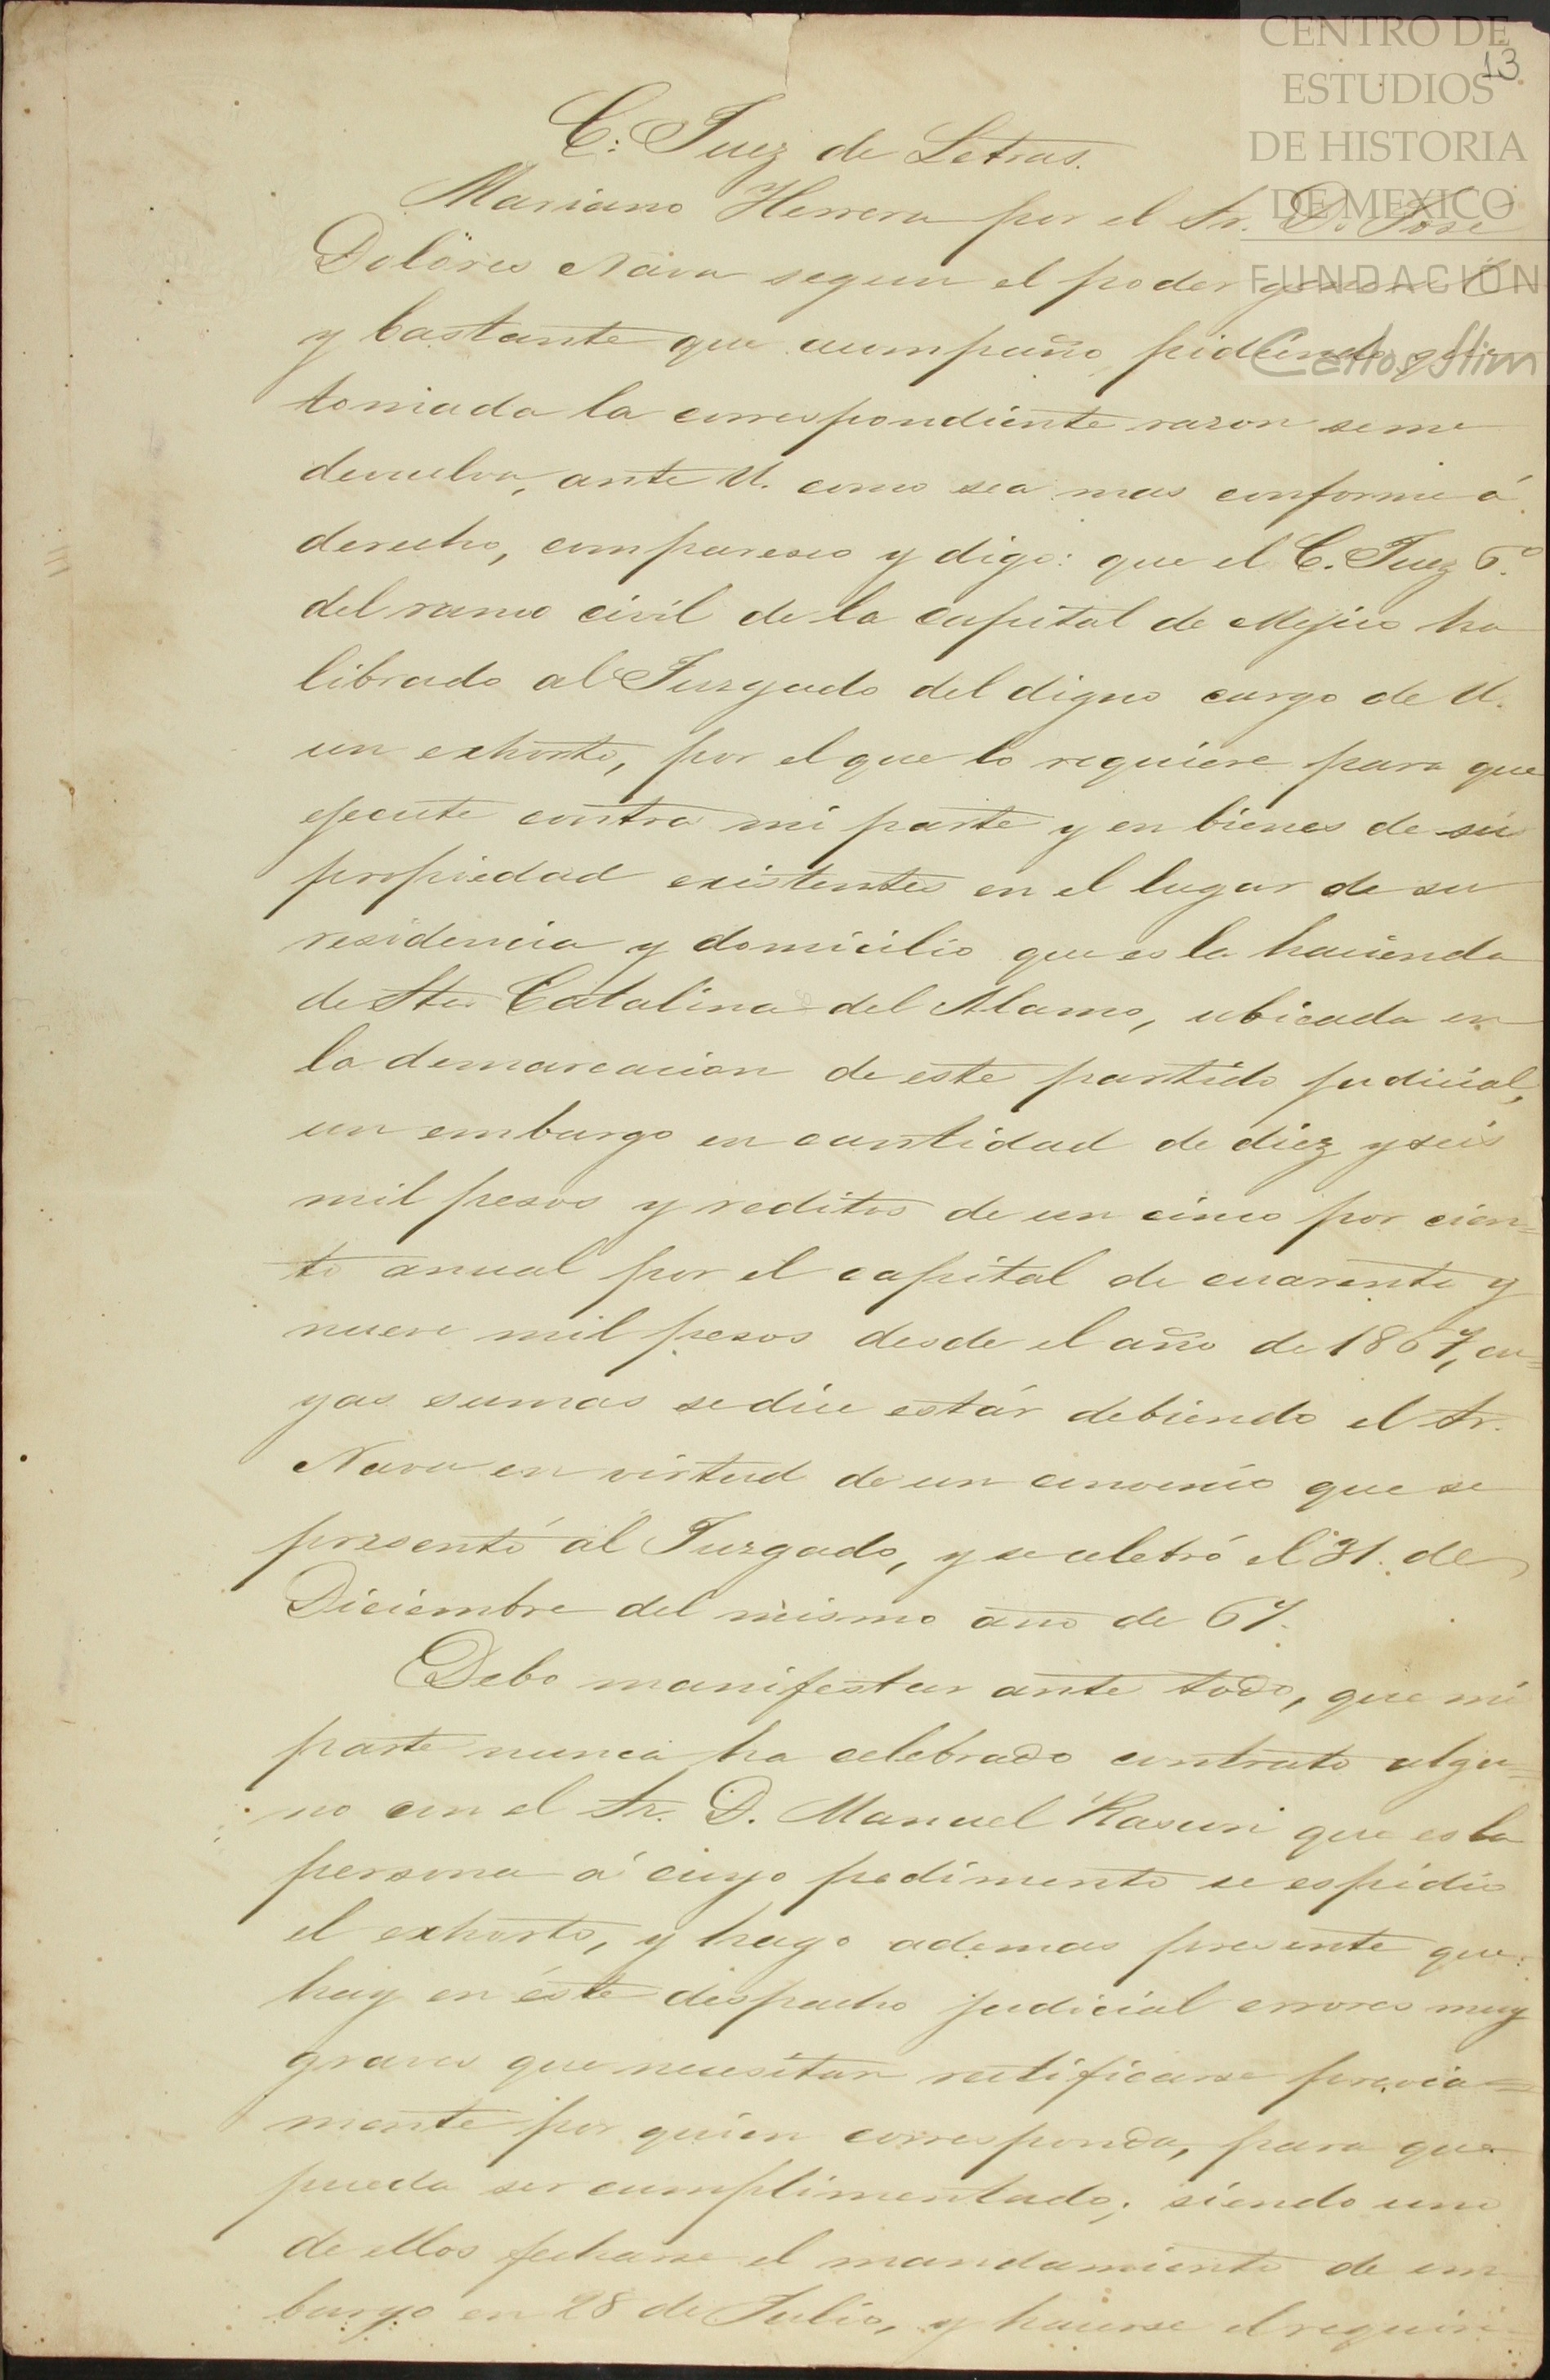 CENTRO DE
ESTUDIOS
DE HISTORIA
DE MEXICO
FUNDACIÓN
Carlos Slim
13
C. Juez de Letras.
Mariano Herrera por el Sr. D. José
Dolores Nava segun el poder
y bastante que acompaño, pidiendo que
tomada la correspondiente razon se me
devuelva, ante U. como sea mas conforme á
derecho, comparesco y digo: que el C. Juez 6.º
del ramo civil de la capital de Mejico ha
librado al Juzgado del digno cargo de U.
un exhorto, por el que lo requiere para que
ejecute contra mi parte y en bienes de su
propiedad existentes en el lugar de su
residencia y domicilio que es la hacienda
de Sta. Catalina del Alamo, ubicada en
la demarcacion de este partido judicial,
un embargo en cantidad de diez y seis
mil pesos y reditos de un cinco por cien=
to anual por el capital de cuarenta y
nueve mil pesos desde el año de 1867, cu=
yas sumas se dice estár debiendo el Sr.
Nava en virtud de un convenio que se
presentó al Juzgado, y se celebró el 31. de
Diciembre del mismo año de 67.
Debo manifestar ante todo, que mi
parte nunca ha celebrado contrato algu=
no con el Sr. D. Manuel que es la
persona á cuyo pedimento se espidió
el exhorto, y hago ademas presente que
hay en éste despacho judicial errores muy
graves que necesitan rectificarse previa=
mente por quien corresponda, para que
pueda ser cumplimentado; siendo uno
de ellos fecharse el mandamiento de em
bargo en 28 de Julio, y hacerse el requiri